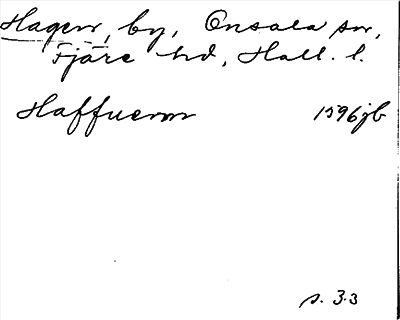 Hagen, by, Onsala sn,
Fjäre hd, Hall. l.
Haffuenn 1596 jb
s. 33